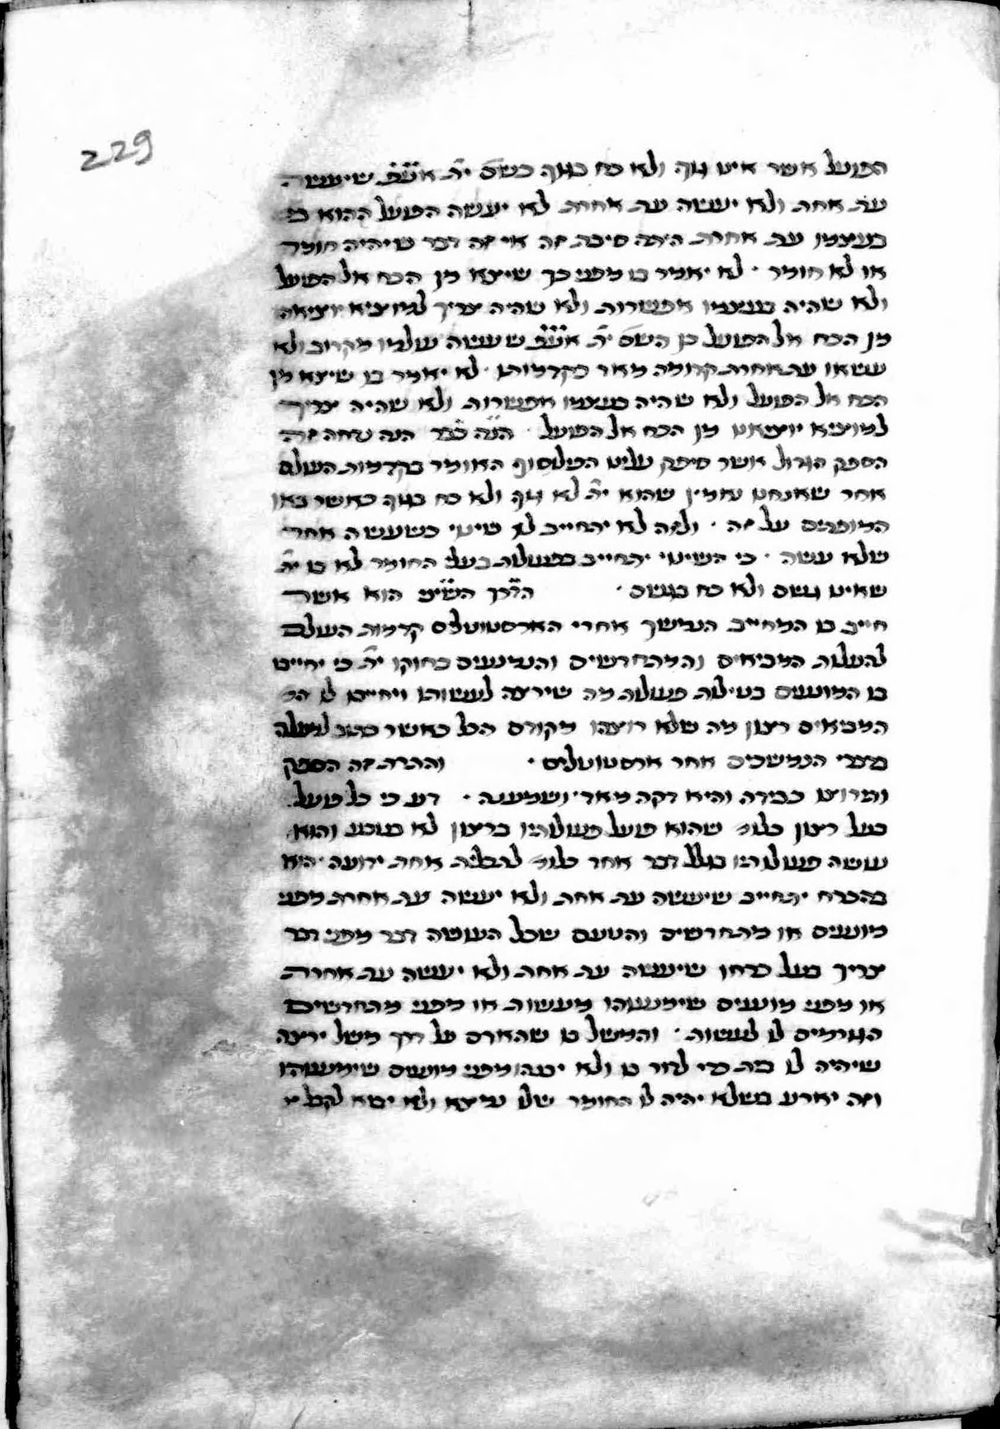 229
הפועל אשר אינו גוף ולא כח בגוף כש״ם ית׳ אע״פ שיעשה
עת אחת ולא יעשה עת אחרת לא יעשה הפועל ההוא בו
בעצמו עת אחרת היתה סיבת זה אי זה דבר שיהיה חומר
או לא חומר · לא יאמר בו מפני כך שיצא מן הכח אל הפועל
ולא שהיה בעצמו אפשרות ולא שהיה צריך למוציא יוציאה
מן הכח אל הפועל כן השם ית׳ אע״פ שעשה עולמו מקרוב ולא
עשאו עת אחרת קדומה מאד בקדמותו · לא יאמר בו שיצא מן
הכח אל הפועל ולא שהיה בעצמו אפשרות ולא שהיה צריך
למוציא יוציאנו מן הכח אל הפועל · הנה כבר הנה נדחה זה
הספק הגדול אשר סיפק עלינו הפילוסוף האומר בקדמות העולם
אחר שאנחנו נאמין שהוא ית׳ לא גוף ולא כח בגוף כאשר באו
המופתים על זה · ולזה לא יתחייב לו שינוי כשעשה אחרי
שלא עשה · כי השינוי יתחייב בפעולות בעלי החומר לא בו ית׳
שאינו גשם ולא כח בגשם · הדרך השני הוא אשר
חייב בו המחייב הנמשך אחרי הארסטוטלוס קדמות העולם
להעלות המביאים והמתחדשים והמונעים בחוקו ית׳ כי יחייבו
בו המונעים בטילות פעולות מה שירצה לעשותו ויחייבו לו
המביאים רצון מה שלא רוצהו מקודם הכל כאשר כתוב למעלה
מדברי הנמשכים אחר ארסטוטלוס · והתרת זה הספק
ותרוצו כבידה והיא דקה מאד ושמענה · דע כי כל פועל
בעל רצון כלו׳ שהוא פועל פעולותיו ברצון לא בטבע והוא
עושה פעולותיו בגלל דבר אחר כלו׳ לתכלית אחת ידועה הוא
בהכרח יתחייב שיעשה עת אחת ולא יעשה עת אחרת מפני
מונעים או מתחדשים והטעם שכל העושה דבר מפני דבר
צריך בעל כרחו שיעשה עת אחת ולא יעשה עת אחרת
או מפני מונעים שימנעוהו מעשות או מפני מתחדשים
הגורמים לו לעשות · והמשל בו שהאדם על דרך משל ירצה
שיהיה לו בית כדי לדור בו ולא יבנהו מפני מונעים שימנעוהו
וזה יארע כשלא יהיה לו החומר שלו נמצא ולא יבא לקבל